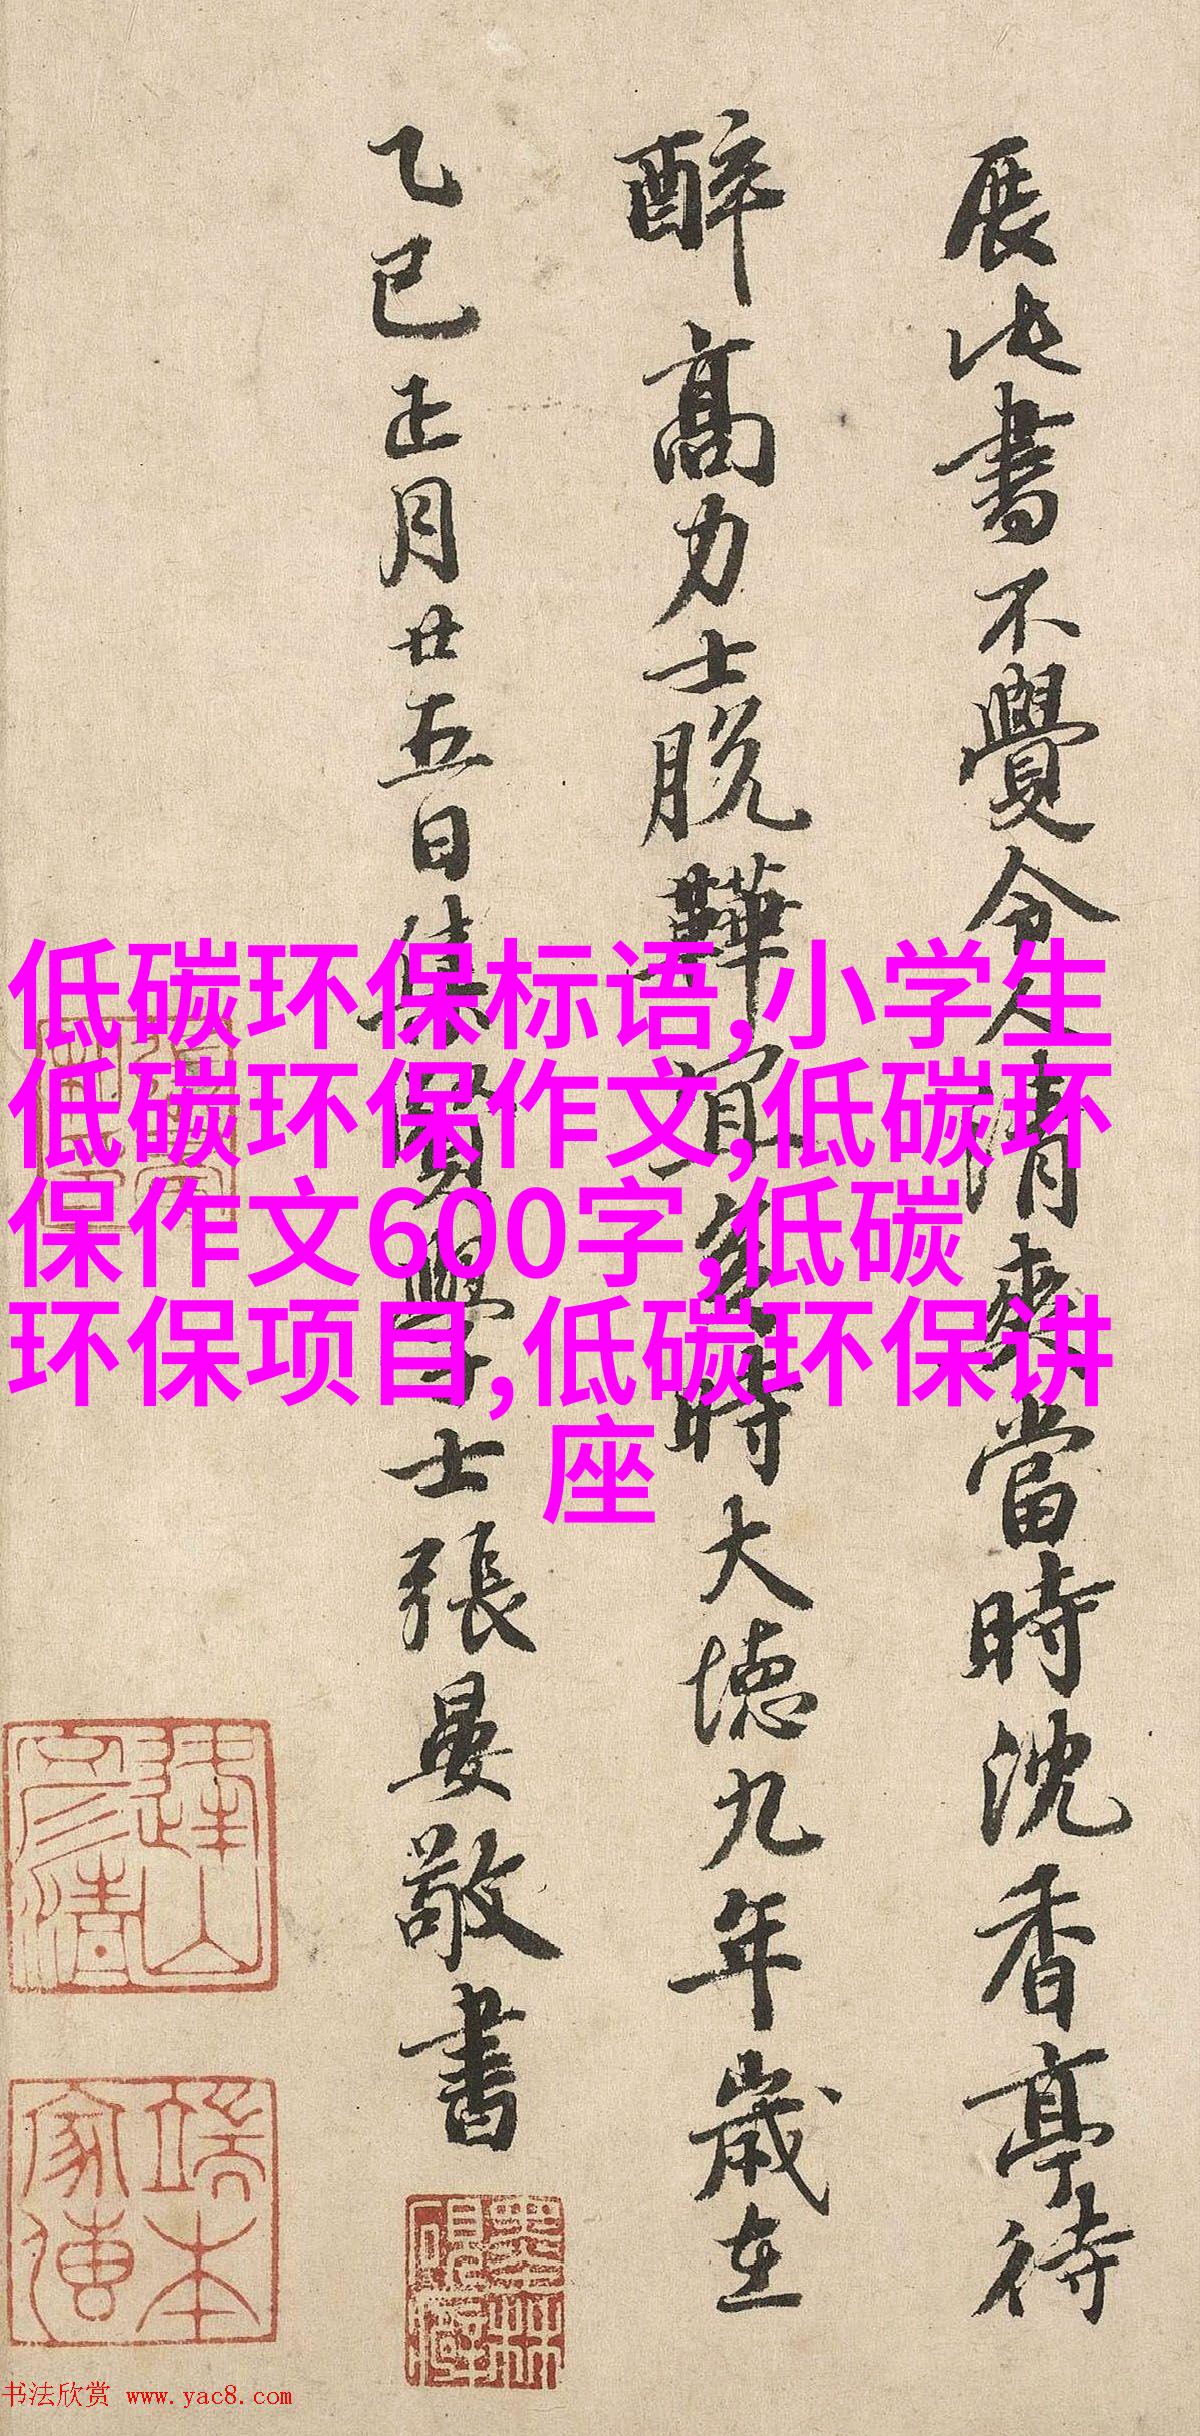 展此書不覺令人清爽當時沈香亭待
醉高力士脱鞾宜矣時大德九年歲在
乙巳正月廿五日集賢學士張晏敬書
低碳环保标语,小学生
低碳环保作文,低碳环
保作文600字,低碳
环保项目,低碳环保讲
座
端本
家傳
书法欣赏 www.yac8.com